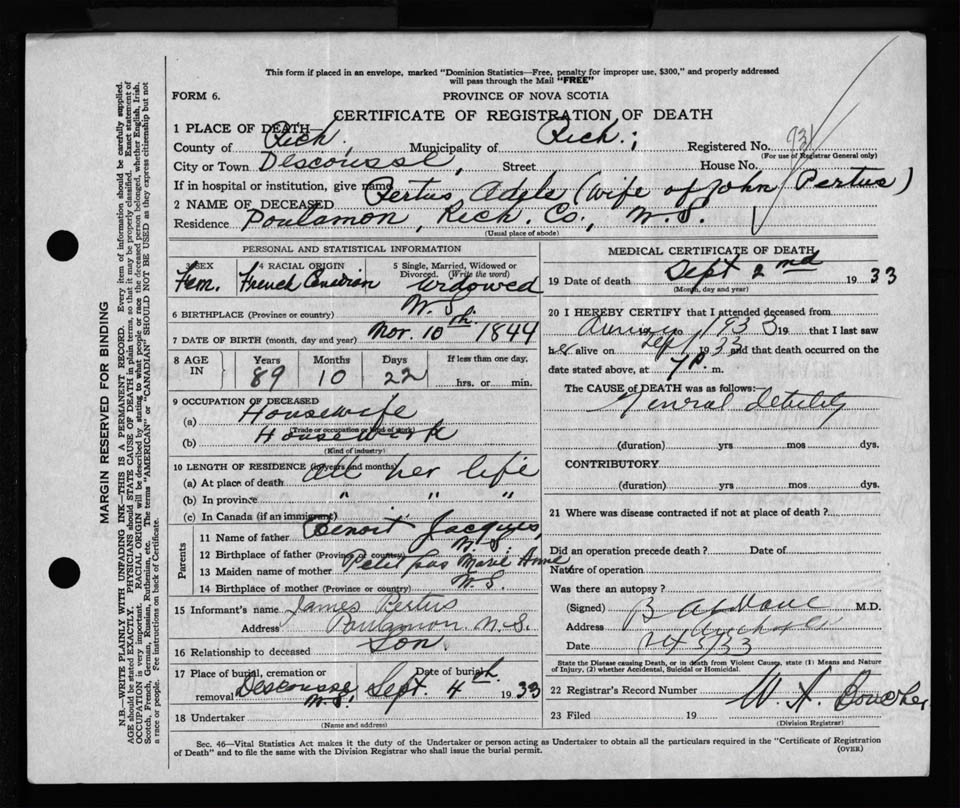 This form if placed in an envelope, marked "Dominion Statistics—Free, penalty for improper use, $300," and properly addressed
will pass through the Mail "FREE"
FORM 6.
PROVINCE OF NOVA SCOTIA
CERTIFICATE OF REGISTRATION OF DEATH
1 PLACE OF DEATH—
County of Rich, Municipality of Rich; Registered No.
(For use of Registrar General only)
City or Town Descousse, Street House No.
If in hospital or institution, give name
2 NAME OF DECEASED Pertus Adele (wife of John Pertus)
Residence Poulamon, Rich. Co., N.S.
(Usual place of abode)
PERSONAL AND STATISTICAL INFORMATION
3 SEX Fem.
4 RACIAL ORIGIN French Canadian
5 Single, Married, Widowed or Divorced. (Write the word) Widowed
6 BIRTHPLACE (Province or country) N.S.
7 DATE OF BIRTH (month, day and year) Nov. 10th. 1844
8 AGE IN Years 89 Months 10 Days 22 If less than one day, hrs. or min.
9 OCCUPATION OF DECEASED
(a) Housewife
(Trade or occupation or kind of work)
(b) Housework
(Kind of industry)
10 LENGTH OF RESIDENCE (in years and months)
(a) At place of death All her life
(b) In province " " "
(c) In Canada (if an immigrant)
Parents
11 Name of father Benoit Jacques,
12 Birthplace of father (Province or country) N.S.
13 Maiden name of mother Petit pas Marie Anne
14 Birthplace of mother (Province or country) N.S.
15 Informant's name James Pertus
Address Poulamon N.S.
16 Relationship to deceased Son.
17 Place of burial, cremation or removal Descousse, N.S. Date of burial Sept. 4th 1933
18 Undertaker
(Name and address)
MEDICAL CERTIFICATE OF DEATH
19 Date of death Sept 2nd 1933
(Month, day and year)
20 I HEREBY CERTIFY that I attended deceased from
to 1933 19 that I last saw
her alive on Sept 1933 and that death occurred on the
date stated above, at 7 P. m.
The CAUSE of DEATH was as follows:
General debility
(duration) yrs mos dys.
CONTRIBUTORY
(duration) yrs mos dys.
21 Where was disease contracted if not at place of death?
Did an operation precede death? Date of
Nature of operation
Was there an autopsy?
(Signed) M.D.
Address
Date
State the Disease causing Death, or in death from Violent Causes, state (1) Means and Nature
of Injury, (2) whether Accidental, Suicidal or Homicidal.
22 Registrar's Record Number
23 Filed 19 W. A. Boucher
(Division Registrar)
Sec. 46—Vital Statistics Act makes it the duty of the Undertaker or person acting as Undertaker to obtain all the particulars required in the "Certificate of Registration
of Death" and to file the same with the Division Registrar who shall issue the burial permit.
(OVER)
MARGIN RESERVED FOR BINDING
N.B.—WRITE PLAINLY WITH UNFADING INK—THIS IS A PERMANENT RECORD. Every item of information should be carefully supplied.
AGE should be stated EXACTLY. PHYSICIANS should STATE CAUSE OF DEATH in plain terms, so that it may be properly classified. Exact statement of
OCCUPATION is very important. RACIAL ORIGIN will be described by stating to what people or race the deceased person belonged, whether English, Irish,
Scotch, French, German, Russian, Ruthenian, etc. The terms "AMERICAN" or "CANADIAN" SHOULD NOT BE USED as they express citizenship but not
a race or people. See instructions on back of Certificate.